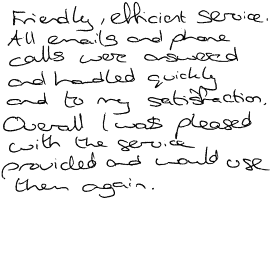 Friendly, efficient service.
All emails and phone
calls were answered
and handled quickly
and to my satisfaction.
Overall I was pleased
with the service
provided and would use
them again.